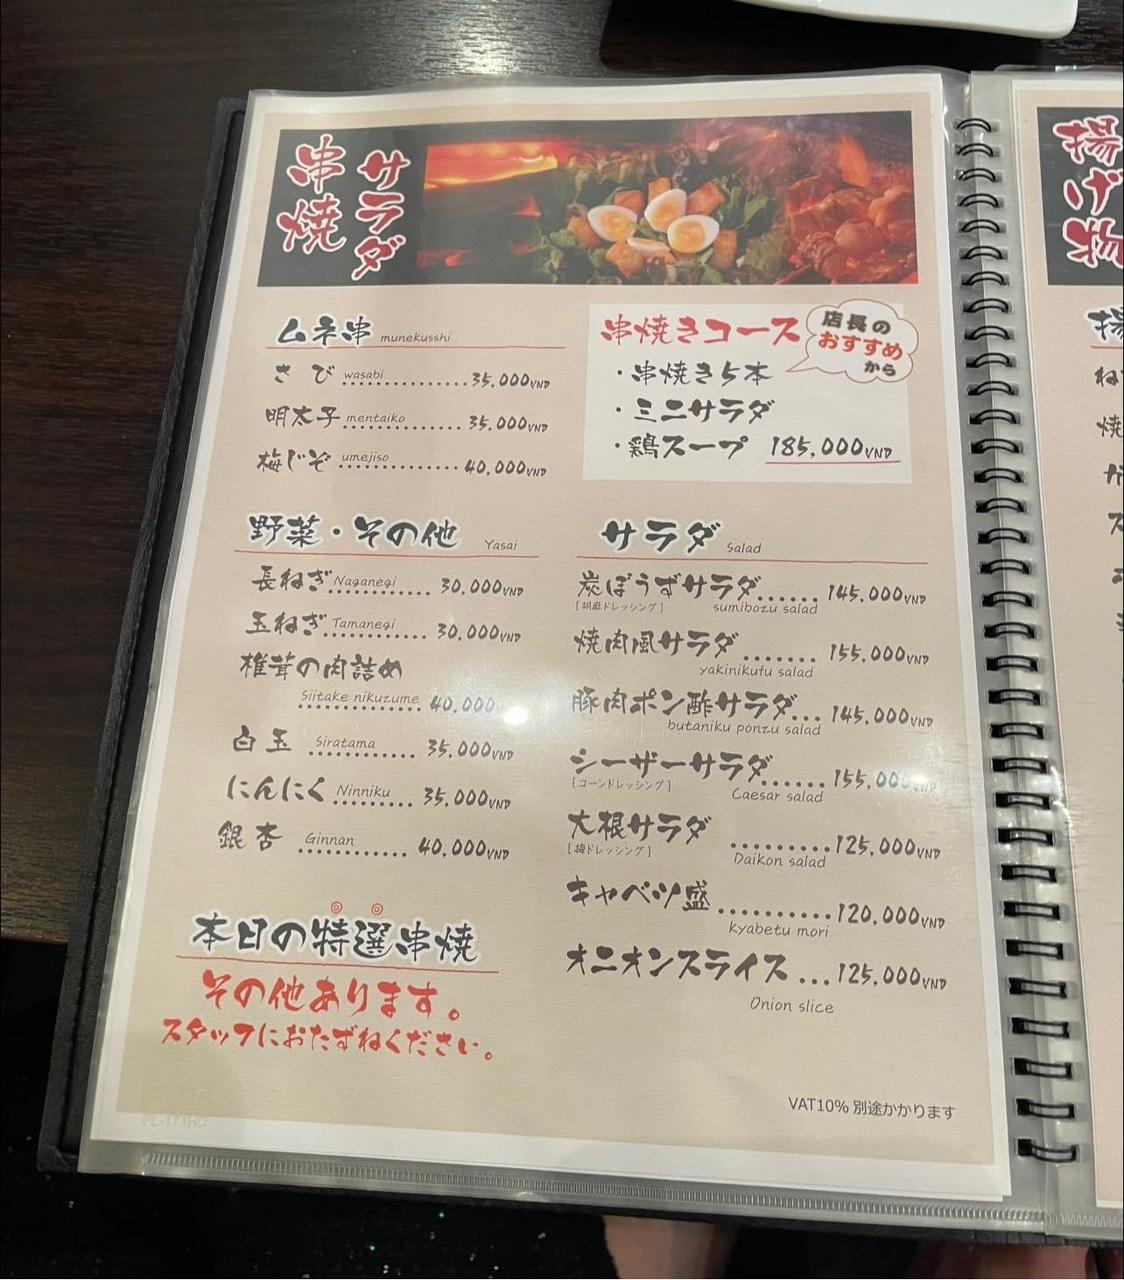 串焼
サラダ
ムネ串 munekusshi
さび wasabi ............ 35,000VND
明太子 mentaiko ............ 35,000VND
梅じそ umejiso ............ 40,000VND
串焼きコース
店長の
おすすめ
から
・串焼き5本
・ミニサラダ
・鶏スープ 185,000VND
野菜・その他 Yasai
長ねぎ Naganegi ............ 30,000VND
玉ねぎ Tamanegi ............ 30,000VND
椎茸の肉詰め
Siitake nikuzume ............ 40,000
白玉 Siratama ............ 35,000VND
にんにく Ninniku ............ 35,000VND
銀杏 Ginnan ............ 40,000VND
本日の特選串焼
その他あります。
スタッフにおたずねください。
サラダ Salad
炭ぼうずサラダ...... 145,000VND
[胡麻ドレッシング] sumibozu salad
焼肉風サラダ ....... 155,000VND
yakinikufu salad
豚肉ポン酢サラダ... 145,000VND
butaniku ponzu salad
シーザーサラダ...... 155,000VND
[コーンドレッシング] Caesar salad
大根サラダ ......... 125,000VND
[梅ドレッシング] Daikon salad
キャベツ盛 .......... 120,000VND
kyabetu mori
オニオンスライス ... 125,000VND
Onion slice
VAT10% 別途かかります
揚げ物